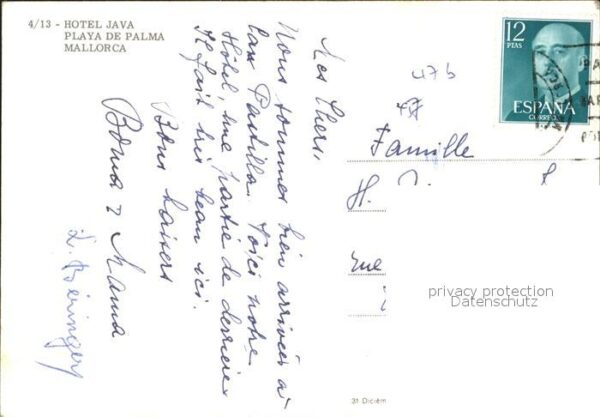 4/13 - HOTEL JAVA
PLAYA DE PALMA
MALLORCA
Mes Chers,
Nous sommes bien arrivés à
Can Pastilla. Voici notre
Hôtel, une partie de derrière
Il fait très beau ici.
Bons baisers
Boma & Mama
12
PTAS
ESPAÑA
CORREO
47 b
Famille
H.
rue
privacy protection
Datenschutz